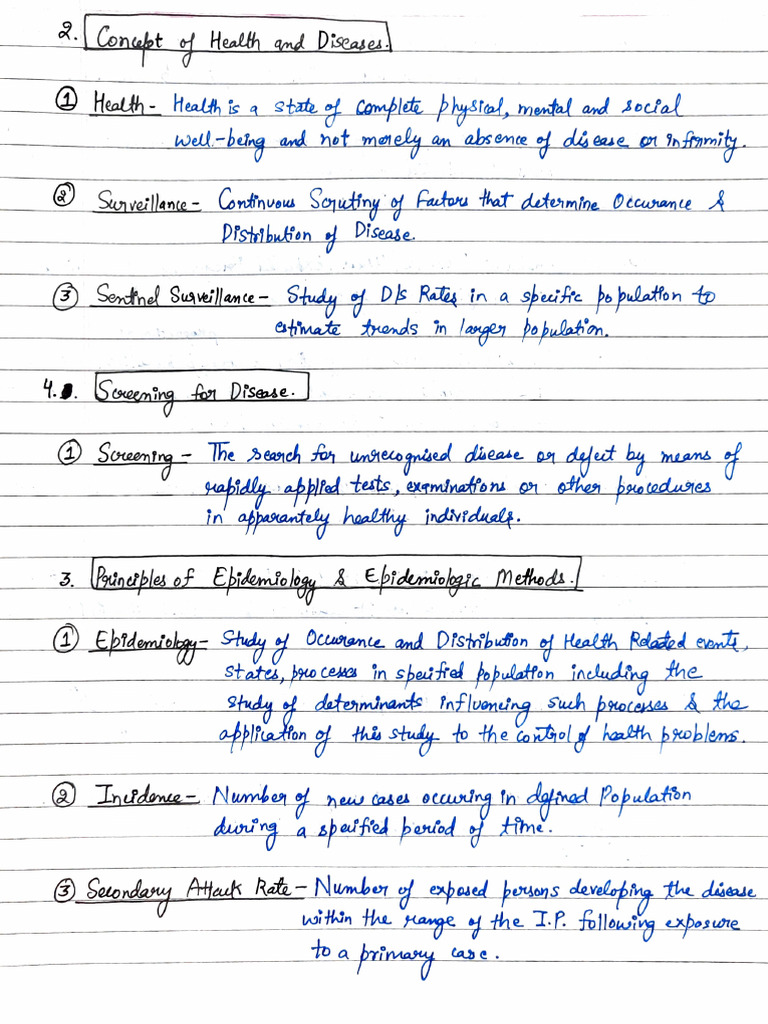 2. Concept of Health and Diseases.
① Health - Health is a state of complete physical, mental and social
well-being and not merely an absence of disease or infirmity.
② Surveillance - Continuous Scrutiny of Factors that determine Occurance &
Distribution of Disease.
③ Sentinel Surveillance - Study of D/s Rates in a specific population to
estimate trends in larger population.
4. Screening for Disease.
① Screening - The search for unrecognised disease or defect by means of
rapidly applied tests, examinations or other procedures
in apparantely healthy individuals.
3. Principles of Epidemiology & Epidemiologic Methods.
① Epidemiology - Study of Occurance and Distribution of Health Related events,
states, processes in specified population including the
study of determinants influencing such processes & the
application of this study to the control of health problems.
② Incidence - Number of new cases occuring in defined Population
during a specified period of time.
③ Secondary Attack Rate - Number of exposed persons developing the disease
within the range of the I.P. following exposure
to a primary case.